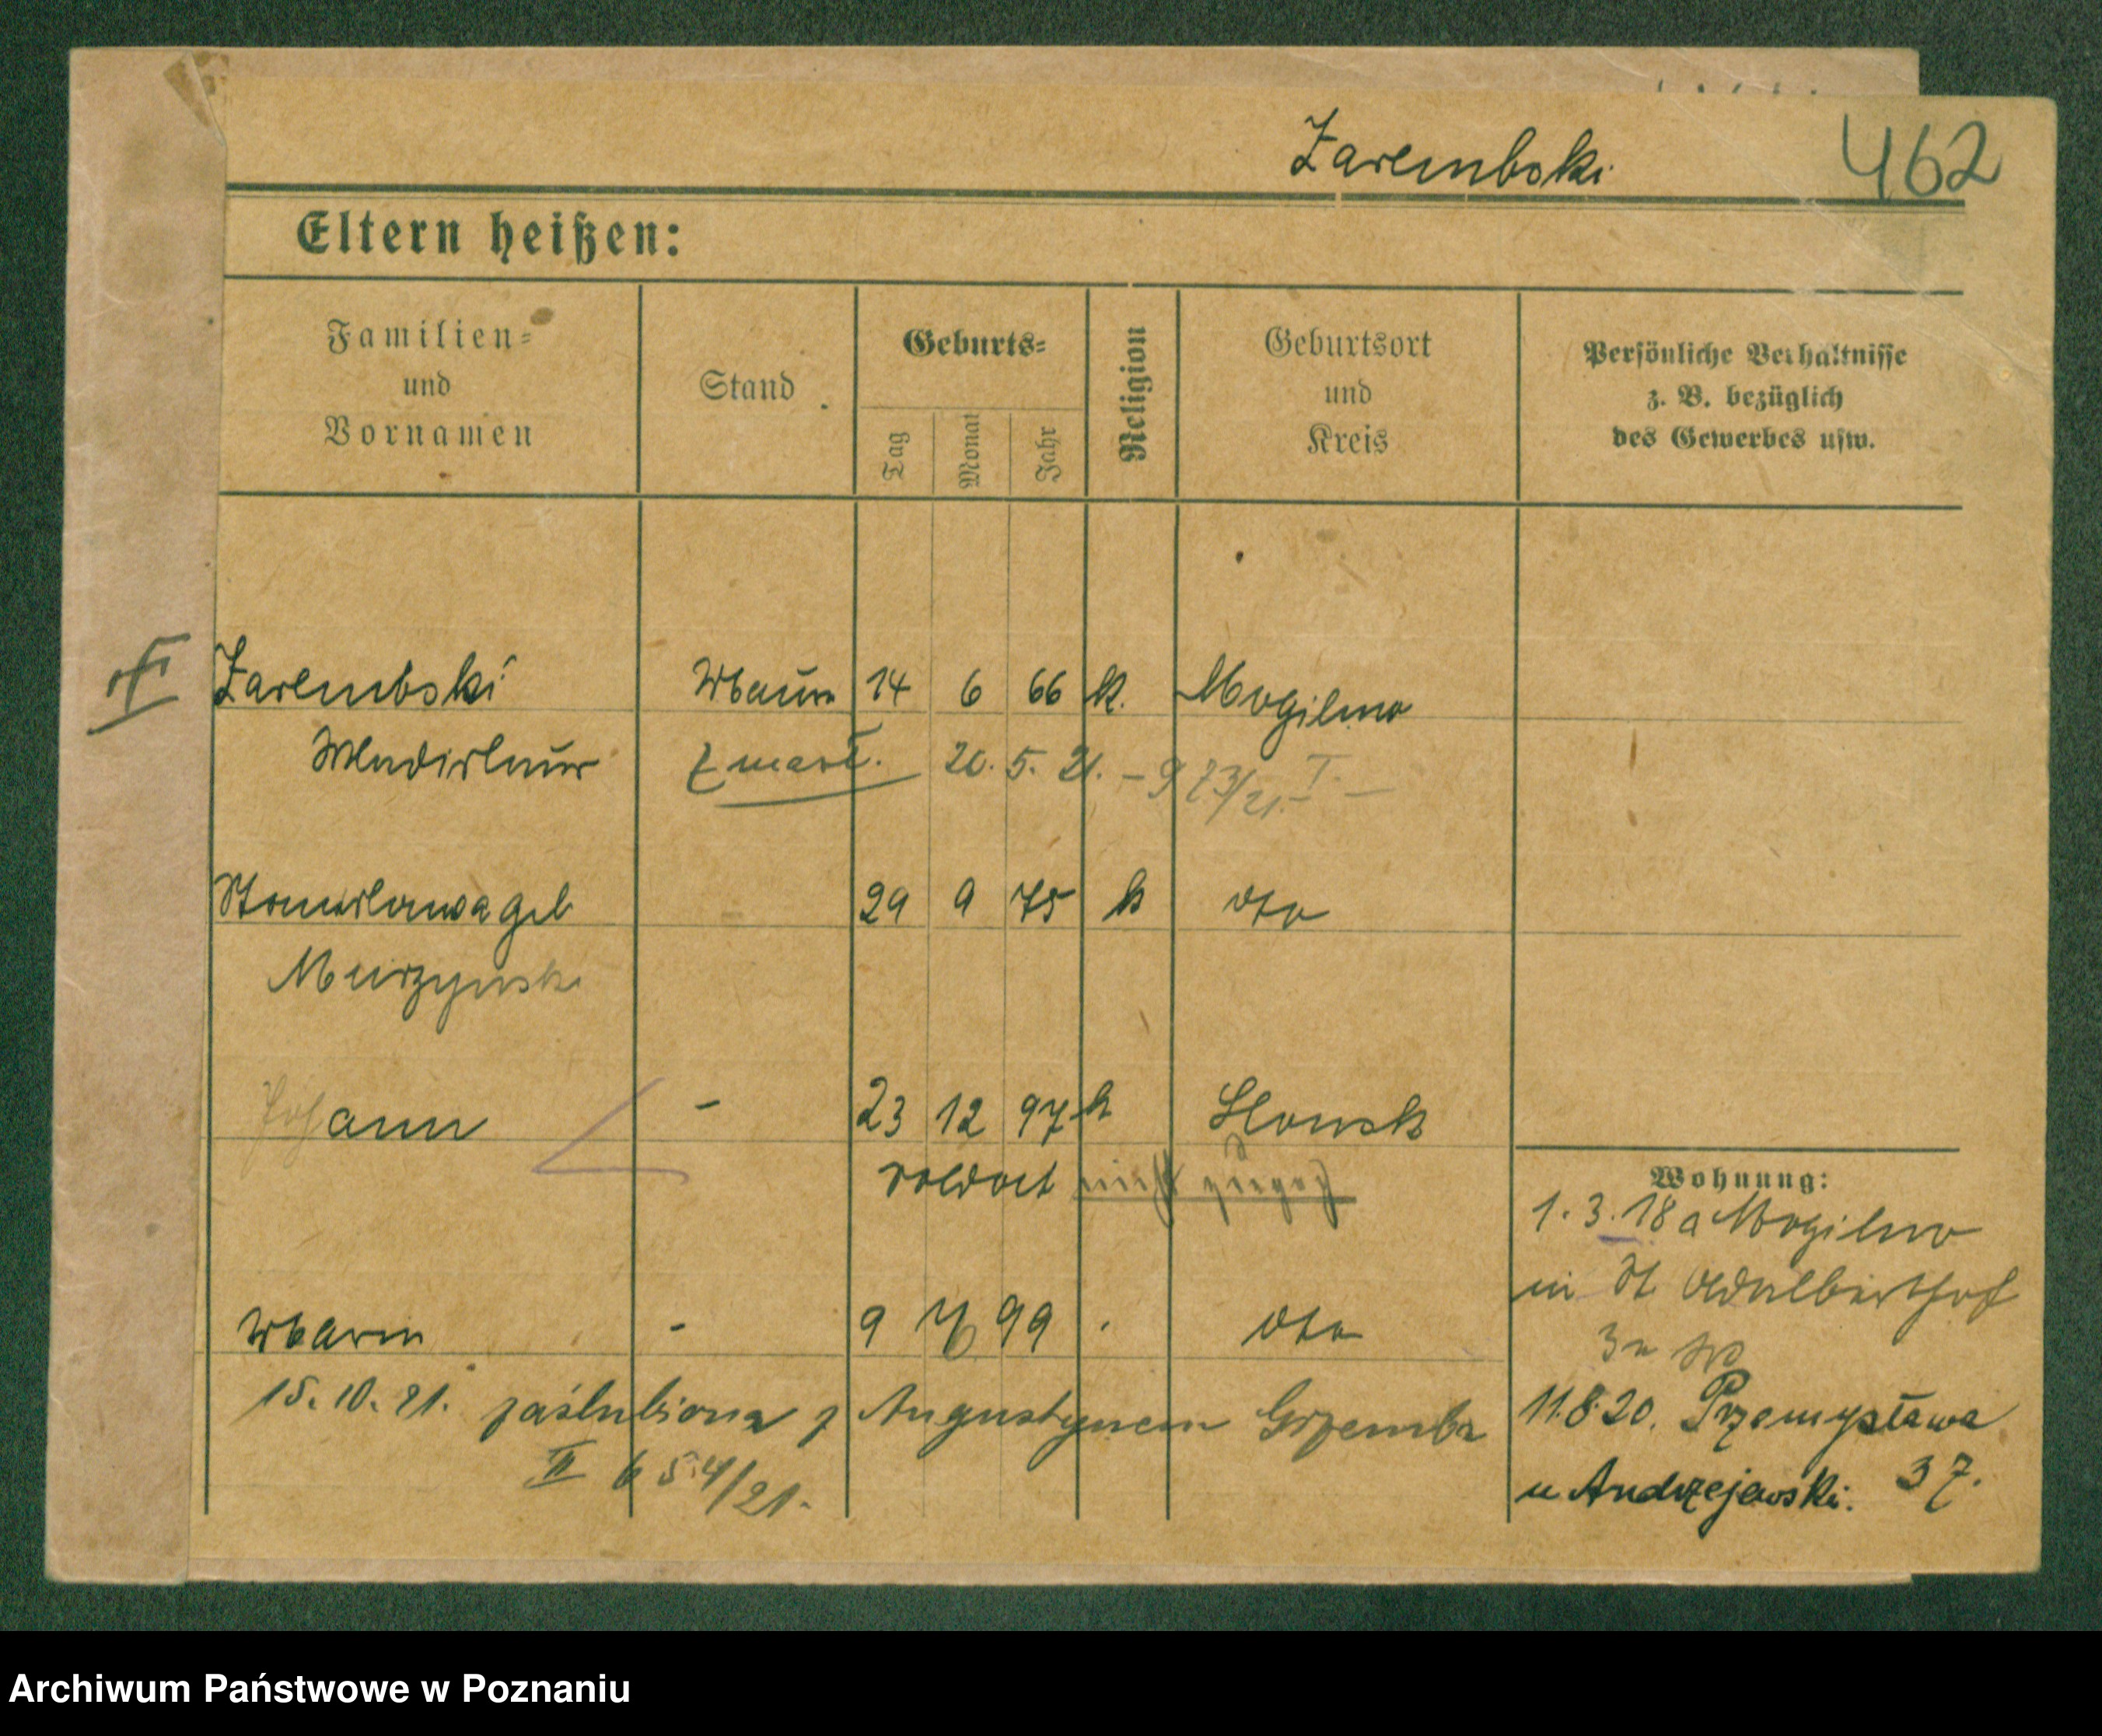 Zarembski 462
Eltern heißen:
Familien=
und
Vornamen
Stand
Geburts=
Tag
Monat
Jahr
Religion
Geburtsort
und
Kreis
Persönliche Verhältnisse
z. B. bezüglich
des Gewerbes usw.
Zarembski 14 6 66 k. Mogilno
zmarł. 20. 5. 21. – 973/21. I. –
Stanislawa geb 29 9 75 k dto
Murzynski
Johann - 23 12 97 k Slonsk
Soldat nicht zugez
Wohnung:
1. 3. 18 a Mogilno
in St Adalbertstr
Maria - 9 99 dto
15. 10. 21. zaślubiona z Augustynem Grzemba
II 654/21.
11.8.20. Przemysława
37.
u Andrzejewski.
Archiwum Państwowe w Poznaniu